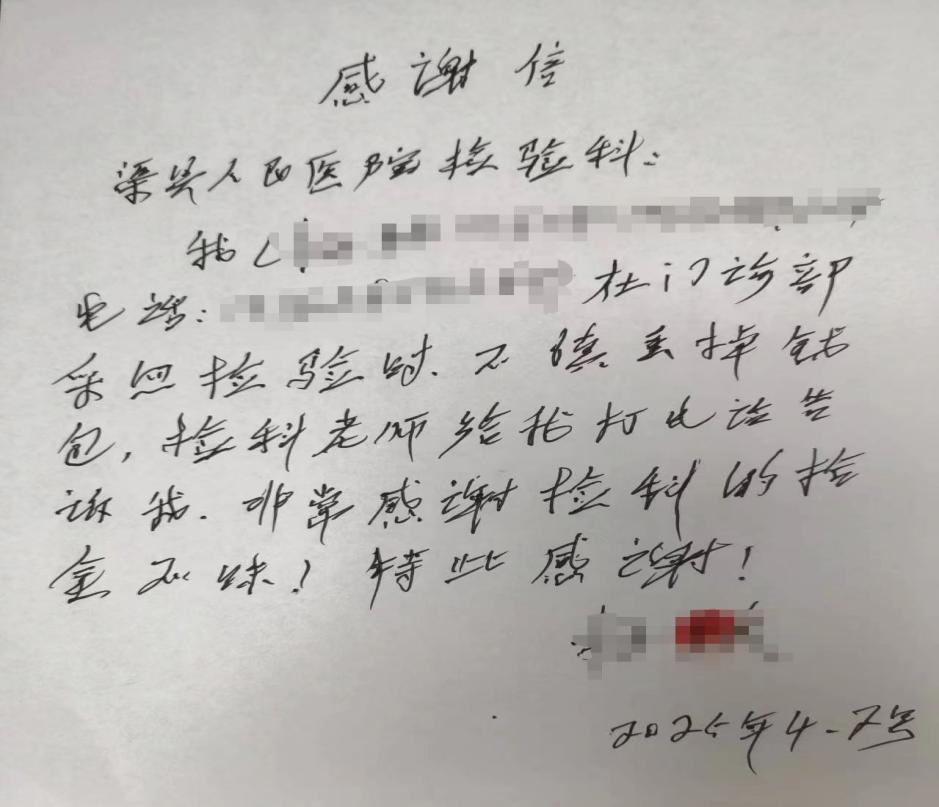 感谢信
渠县人民医院检验科：
我（
电话： 在门诊部
采血检验时、不慎丢掉钱
包，检科老师给我打电话告
诉我．非常感谢检科的拾
金不昧！特此感谢！
2025年4.2号